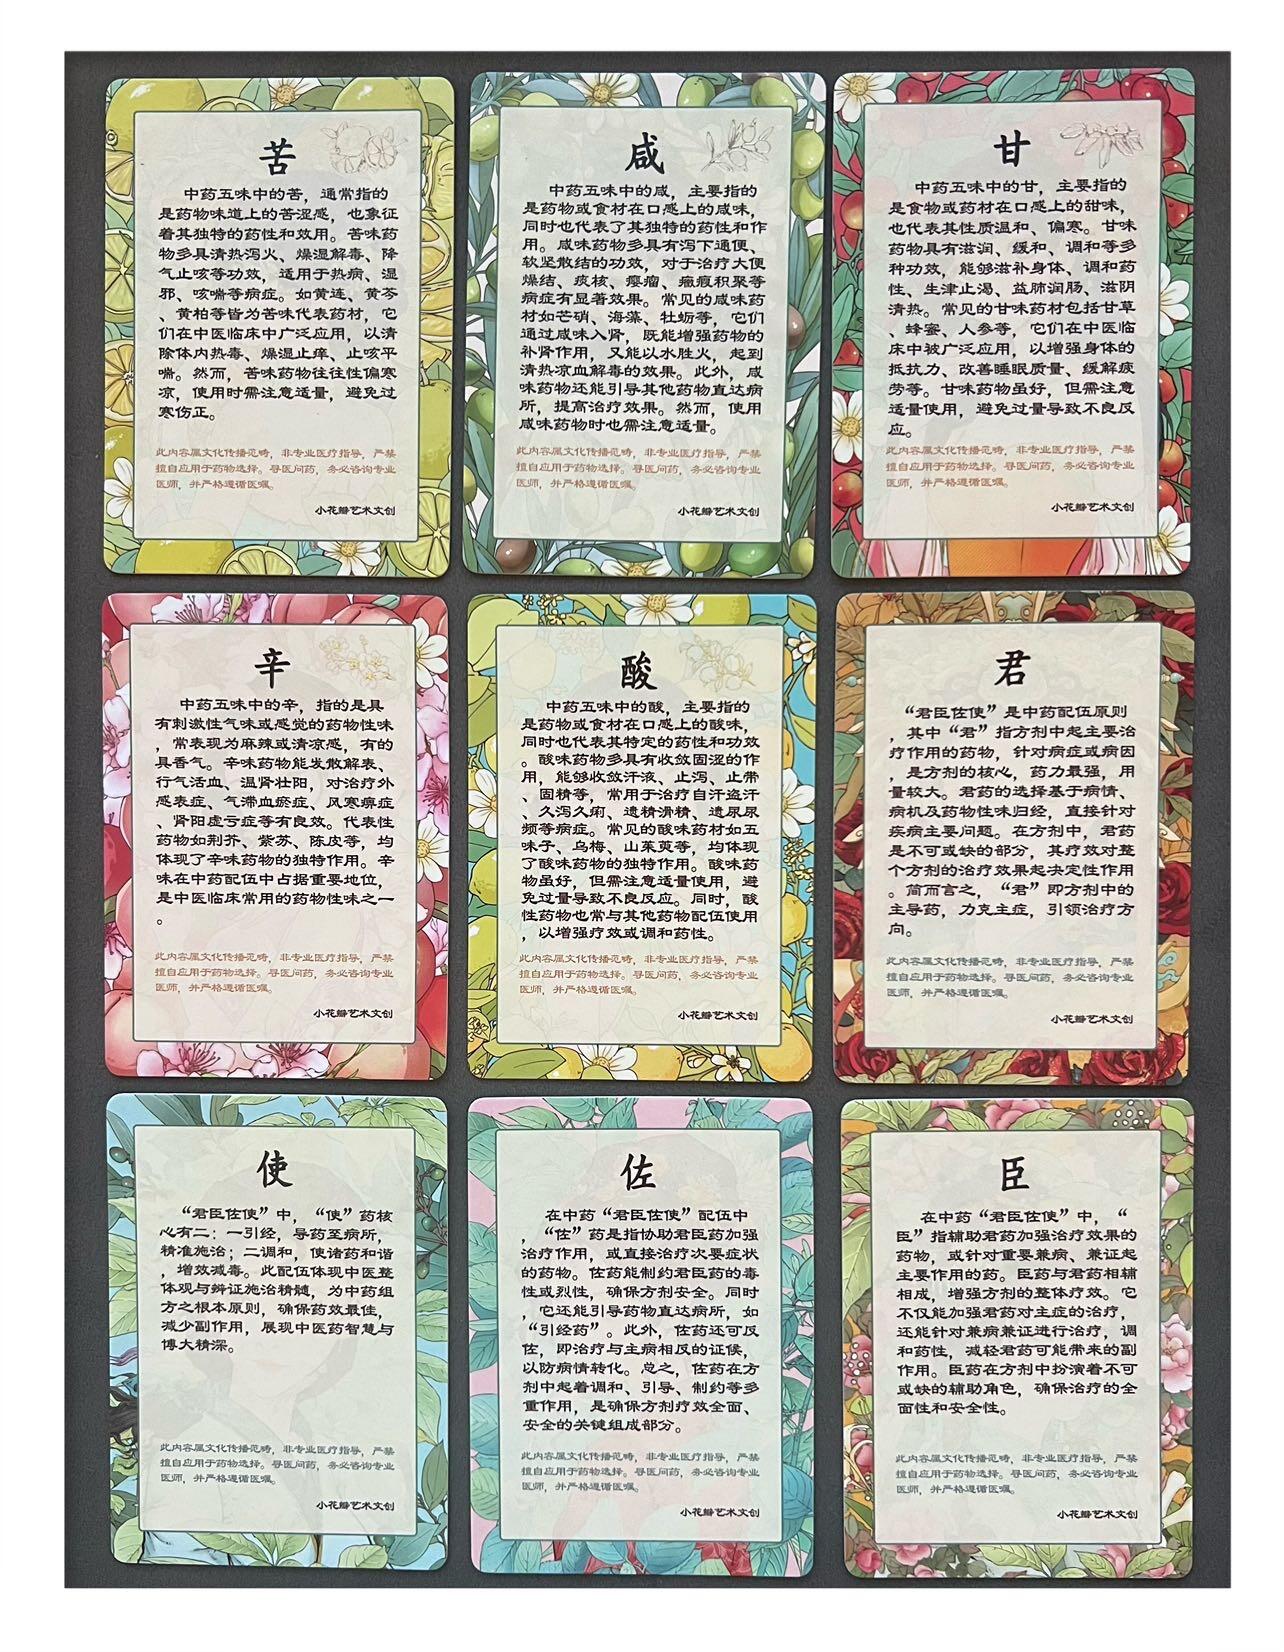 苦
中药五味中的苦，通常指的
是药物味道上的苦涩感，也象征
着其独特的药性和效用。苦味药
物多具清热泻火、燥湿解毒、降
气止咳等功效，适用于热病、湿
邪、咳喘等病症。如黄连、黄芩
、黄柏等皆为苦味代表药材，它
们在中医临床中广泛应用，以清
除体内热毒、燥湿止痒、止咳平
喘。然而，苦味药物往往性偏寒
凉，使用时需注意适量，避免过
寒伤正。
此内容属文化传播范畴，非专业医疗指导，严禁
擅自应用于药物选择。寻医问药，务必咨询专业
医师，并严格遵循医嘱。
小花瓣艺术文创
咸
中药五味中的咸，主要指的
是药物或食材在口感上的咸味，
同时也代表了其独特的药性和作
用。咸味药物多具有泻下通便、
软坚散结的功效，对于治疗大便
燥结、痰核、瘿瘤、癥瘕积聚等
病症有显著效果。常见的咸味药
材如芒硝、海藻、牡蛎等，它们
通过咸味入肾，既能增强药物的
补肾作用，又能以水胜火，起到
清热凉血解毒的效果。此外，咸
味药物还能引导其他药物直达病
所，提高治疗效果。然而，使用
咸味药物时也需注意适量。
此内容属文化传播范畴，非专业医疗指导，严禁
擅自应用于药物选择。寻医问药，务必咨询专业
医师，并严格遵循医嘱。
小花瓣艺术文创
甘
中药五味中的甘，主要指的
是食物或药材在口感上的甜味，
也代表其性质温和、偏寒。甘味
药物具有滋润、缓和、调和等多
种功效，能够滋补身体、调和药
性、生津止渴、益肺润肠、滋阴
清热。常见的甘味药材包括甘草
、蜂蜜、人参等，它们在中医临
床中被广泛应用，以增强身体的
抵抗力、改善睡眠质量、缓解疲
劳等。甘味药物虽好，但需注意
适量使用，避免过量导致不良反
应。
此内容属文化传播范畴，非专业医疗指导，严禁
擅自应用于药物选择。寻医问药，务必咨询专业
医师，并严格遵循医嘱。
小花瓣艺术文创
辛
中药五味中的辛，指的是具
有刺激性气味或感觉的药物性味
，常表现为麻辣或清凉感，有的
具香气。辛味药物能发散解表、
行气活血、温肾壮阳，对治疗外
感表症、气滞血瘀症、风寒痹症
、肾阳虚亏症等有良效。代表性
药物如荆芥、紫苏、陈皮等，均
体现了辛味药物的独特作用。辛
味在中药配伍中占据重要地位，
是中医临床常用的药物性味之一
。
此内容属文化传播范畴，非专业医疗指导，严禁
擅自应用于药物选择。寻医问药，务必咨询专业
医师，并严格遵循医嘱。
小花瓣艺术文创
酸
中药五味中的酸，主要指的
是药物或食材在口感上的酸味，
同时也代表其特定的药性和功效
。酸味药物多具有收敛固涩的作
用，能够收敛汗液、止泻、止带
、固精等，常用于治疗自汗盗汗
、久泻久痢、遗精滑精、遗尿尿
频等病症。常见的酸味药材如五
味子、乌梅、山茱萸等，均体现
了酸味药物的独特作用。酸味药
物虽好，但需注意适量使用，避
免过量导致不良反应。同时，酸
性药物也常与其他药物配伍使用
，以增强疗效或调和药性。
此内容属文化传播范畴，非专业医疗指导，严禁
擅自应用于药物选择。寻医问药，务必咨询专业
医师，并严格遵循医嘱。
小花瓣艺术文创
君
“君臣佐使”是中药配伍原则
，其中“君”指方剂中起主要治
疗作用的药物，针对病症或病因
，是方剂的核心，药力最强，用
量较大。君药的选择基于病情、
病机及药物性味归经，直接针对
疾病主要问题。在方剂中，君药
是不可或缺的部分，其疗效对整
个方剂的治疗效果起决定性作用
。简而言之，“君”即方剂中的
主导药，力克主症，引领治疗方
向。
此内容属文化传播范畴，非专业医疗指导，严禁
擅自应用于药物选择。寻医问药，务必咨询专业
医师，并严格遵循医嘱。
小花瓣艺术文创
使
“君臣佐使”中，“使”药核
心有二：一引经，导药至病所，
精准施治；二调和，使诸药和谐
，增效减毒。此配伍体现中医整
体观与辨证施治精髓，为中药组
方之根本原则，确保药效最佳，
减少副作用，展现中医药智慧与
博大精深。
此内容属文化传播范畴，非专业医疗指导，严禁
擅自应用于药物选择。寻医问药，务必咨询专业
医师，并严格遵循医嘱。
小花瓣艺术文创
佐
在中药“君臣佐使”配伍中
，“佐”药是指协助君臣药加强
治疗作用，或直接治疗次要症状
的药物。佐药能制约君臣药的毒
性或烈性，确保方剂安全。同时
，它还能引导药物直达病所，如
“引经药”。此外，佐药还可反
佐，即治疗与主病相反的证候，
以防病情转化。总之，佐药在方
剂中起着调和、引导、制约等多
重作用，是确保方剂疗效全面、
安全的关键组成部分。
此内容属文化传播范畴，非专业医疗指导，严禁
擅自应用于药物选择。寻医问药，务必咨询专业
医师，并严格遵循医嘱。
小花瓣艺术文创
臣
在中药“君臣佐使”中，“
臣”指辅助君药加强治疗效果的
药物，或针对重要兼病、兼证起
主要作用的药。臣药与君药相辅
相成，增强方剂的整体疗效。它
不仅能加强君药对主症的治疗，
还能针对兼病兼证进行治疗，调
和药性，减轻君药可能带来的副
作用。臣药在方剂中扮演着不可
或缺的辅助角色，确保治疗的全
面性和安全性。
此内容属文化传播范畴，非专业医疗指导，严禁
擅自应用于药物选择。寻医问药，务必咨询专业
医师，并严格遵循医嘱。
小花瓣艺术文创